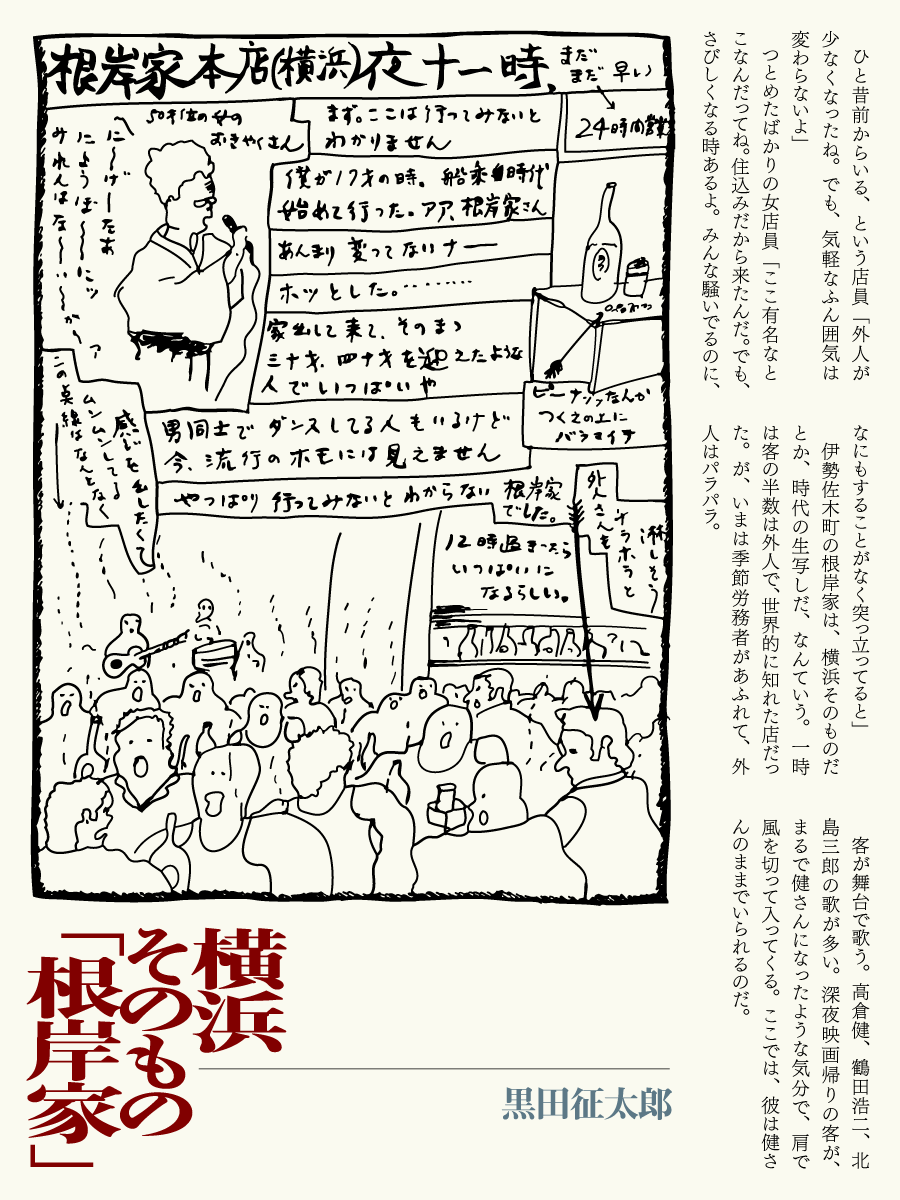 根岸家本店(横浜)夜十一時、
まだ
まだ 早い
24時間営業
50才位の女の
おきゃくさん
に〜げ〜たあ
にょうぼ〜〜にッ
みれんはな〜〜い〜〜が〜ァ
まず。ここは行ってみないと
わかりません
僕が17才の時。船乗り時代
始めて行った。アア、根岸家さん
あんまり 変ってないナー
ホッとした。‥‥‥‥
家出して来て、そのまゝ
三十才、四十才を迎えたような
人でいっぱいや
ピーナッツなんか
つくえの上に
バラマイテ
男同士で ダンスしてる人もいるけど
今、流行のホモには見えません
やっぱり 行ってみないと わからない
根岸家
でした。
感じを出したくて
ムンムンしてる
この莫線はなんとなく
12時過ぎたら
いっぱいに
なるらしい。
淋しそう
チラホラと
外人さんも
ひと昔前からいる、という店員「外人が
少なくなったね。でも、気軽なふん囲気は
変わらないよ」
つとめたばかりの女店員「ここ有名なと
こなんだってね。住込みだから来たんだ。でも、
さびしくなる時あるよ。みんな騒いでるのに、
なにもすることがなく突っ立ってると」
伊勢佐木町の根岸家は、横浜そのものだ
とか、時代の生写しだ、なんていう。一時
は客の半数は外人で、世界的に知れた店だっ
た。が、いまは季節労務者があふれて、外
人はパラパラ。
客が舞台で歌う。高倉健、鶴田浩二、北
島三郎の歌が多い。深夜映画帰りの客が、
まるで健さんになったような気分で、肩で
風を切って入ってくる。ここでは、彼は健さ
んのままでいられるのだ。
横浜
そのもの
「根岸家」
黒田征太郎